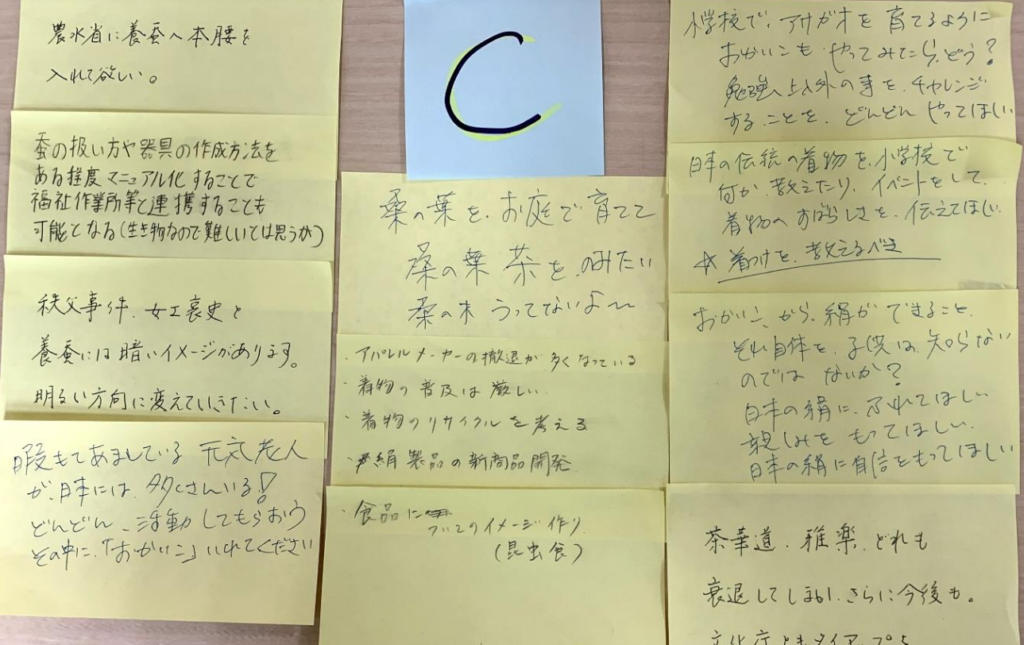 農水省に養蚕へ本腰を
入れて欲しい。
蚕の扱い方や器具の作成方法を
ある程度マニュアル化することで
福祉作業所等と連携することも
可能となる(生き物なので難しいとは思うが)
秩父事件、女工哀史と
養蚕には暗いイメージがあります。
明るい方向に変えていきたい。
暇もてあましている 元気老人
が、日本には、多くさんいる!
どんどん、活動してもらおう
その中に、「おかいこ」いれてください
C
桑の葉を、お庭で育てて
桑の葉 茶を のみたい
桑の木 うってないよ〜
・アパレルメーカーの撤退が多くなっている
・着物の普及は厳しい
・着物のリサイクルを考える
・絹製品の新商品開発
・食品に
ついてのイメージ作り
(昆虫食)
小学校で、アサガオを育てるように
おかいこも やってみてたら、どう?
勉強以外の事を、チャレンジ
することを、どんどん やってほしい
日本の伝統の着物を、小学校で
何か 教えたり、イベントをして、
着物のすばらしさを、伝えてほしい
☆ 着つけを、教えるべき
おかいこから、絹ができること、
それ自体を、子供は、知らない
のでは ないか?
日本の絹に、ふれてほしい
親しみを もってほしい
日本の絹に自信をもってほしい
茶華道、雅楽、どれも
衰退してしまい、さらに今後も。